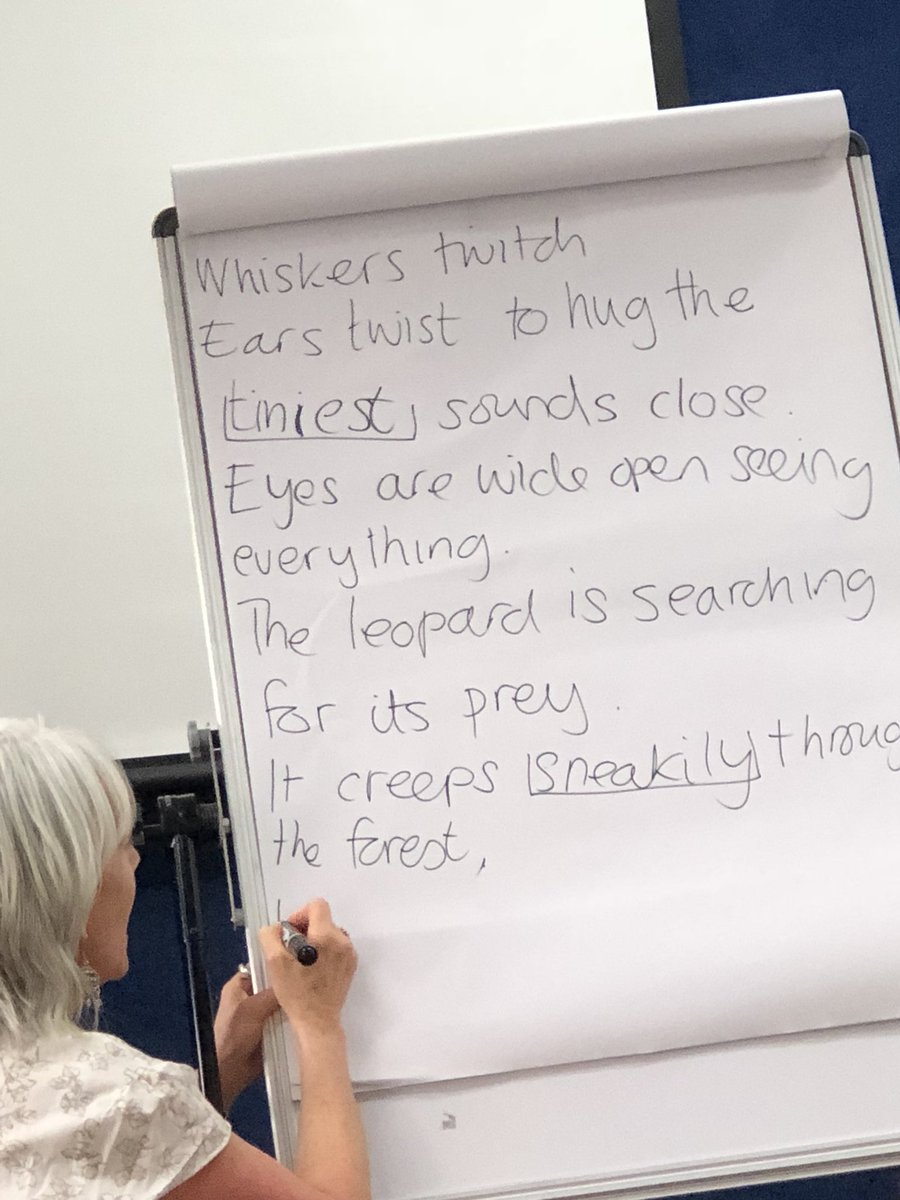 Whiskers twitch
Ears twist to hug the
tiniest sounds close.
Eyes are wide open seeing
everything.
The leopard is searching
for its prey.
It creeps sneakily throug
the forest,